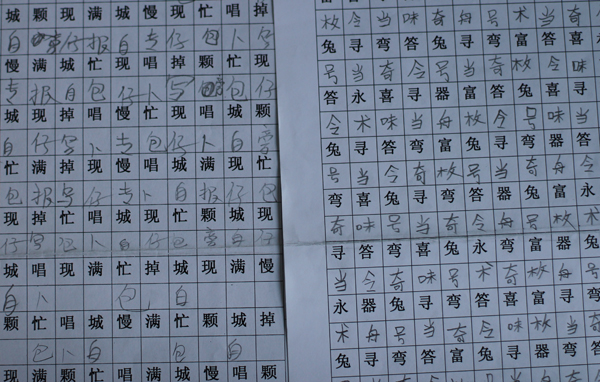 城 颗 现 满 城 慢 现 忙 唱 掉
自 仔 报 自 专 仔 包 卜 写
慢 满 城 忙 现 唱 掉 颗 忙 现
专 报 自 包 仔 卜 写 包 仔
忙 颗 唱 掉 现 忙 现 唱 城 颗
自 仔 写 卜 专 包 仔 卜 自
忙 满 掉 现 慢 唱 城 满 现 忙
包 报 写 仔 专 卜 自 报 仔 包
现 掉 忙 唱 城 现 忙 颗 城 现
仔 写 包 卜 自 仔 包 自 仔
城 唱 现 满 忙 掉 城 现 满 慢
自 卜 包 自
颗 忙 唱 城 慢 满 忙 颗 城 掉
包 卜 自 包 自
现 满 颗 忙 唱 掉 现 城 慢 颗
枚 令 当 味 奇 舟 号 术 当 奇
兔 寻 弯 答 兔 寻 弯 富 答 喜
号 当 奇 令 号 当 奇 枚 令 味
答 永 喜 寻 器 富 答 兔 喜 寻
令 术 味 当 舟 枚 令 号 味 当
兔 寻 答 弯 富 兔 寻 弯 器 答
号 当 令 奇 枚 号 当 奇 舟 令
弯 喜 兔 寻 弯 答 器 兔 富 永
奇 味 号 当 奇 令 舟 号 枚 术
寻 答 弯 喜 兔 永 弯 富 器 兔
当 令 奇 味 号 术 奇 枚 舟 号
永 器 兔 寻 弯 答 喜 富 寻 弯
术 舟 号 当 奇 令 味 枚 当 奇
兔 寻 弯